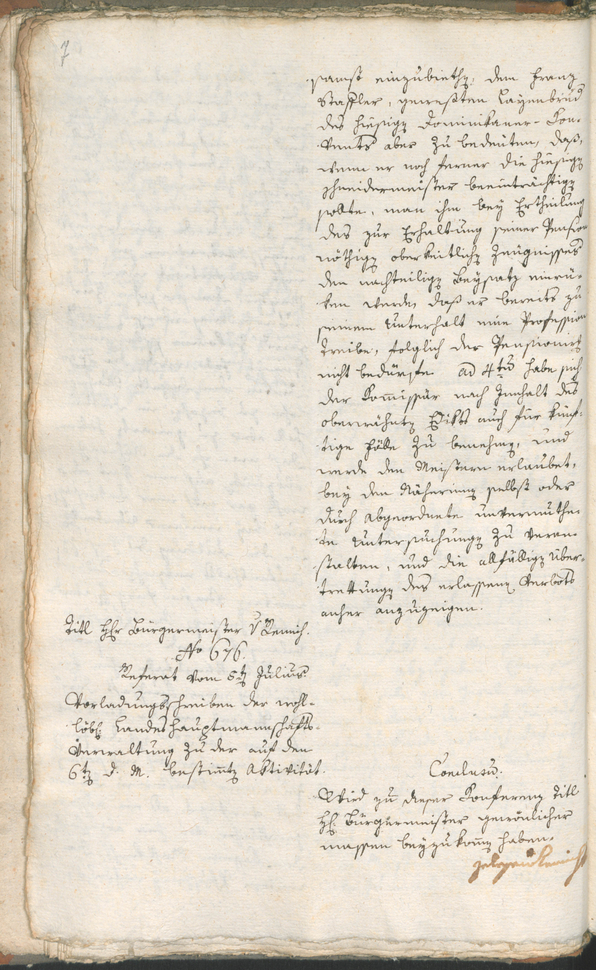 7
samst einzubiethen, dem Franz
Staffler, gewesten Layenbrud
des hiesigen Dominikaner-Kon-
vents aber zu bedeuten, daß,
wenn er noch ferner die hiesigen
Schneidermeister beeinträchtigen
sollte, man ihm bey Ertheilung
des zur Erhaltung seiner Pension
nöthigen oberkeitlichen Zeugnisses
den nachtheiligen Beysatz einrü-
ken werde, daß er bereits zu
seinem Unterhalt eine Profession
treibe, folglich der Pension
nicht bedürfe ad 4tum habe sich
der Komissär nach Innhalt des
oberwähnten Edikts auch für künf-
tige Fälle zu benehmen, und
werde den Meistern erlaubet,
bey den Näherinen selbst oder
durch Abgeordnete unvermuthe-
te Untersuchungen zu veran-
stalten, und die allfälligen Über-
trettungen des erlassenen Verbots
anher anzuzeigen.
Titl Hr Bürgermeister v Remich.
No 676.
Referat vom 5ten Julius
Vorladungsschreiben der wohl-
löbl Landeshauptmannschafts-
Verwaltung zu der auf den
6ten d. M. bestimmten Aktivität.
Conclusum.
Wird zu dieser Konferenz Titl
Hr Bürgermeister gewöhnlicher
massen beyzukommen haben.